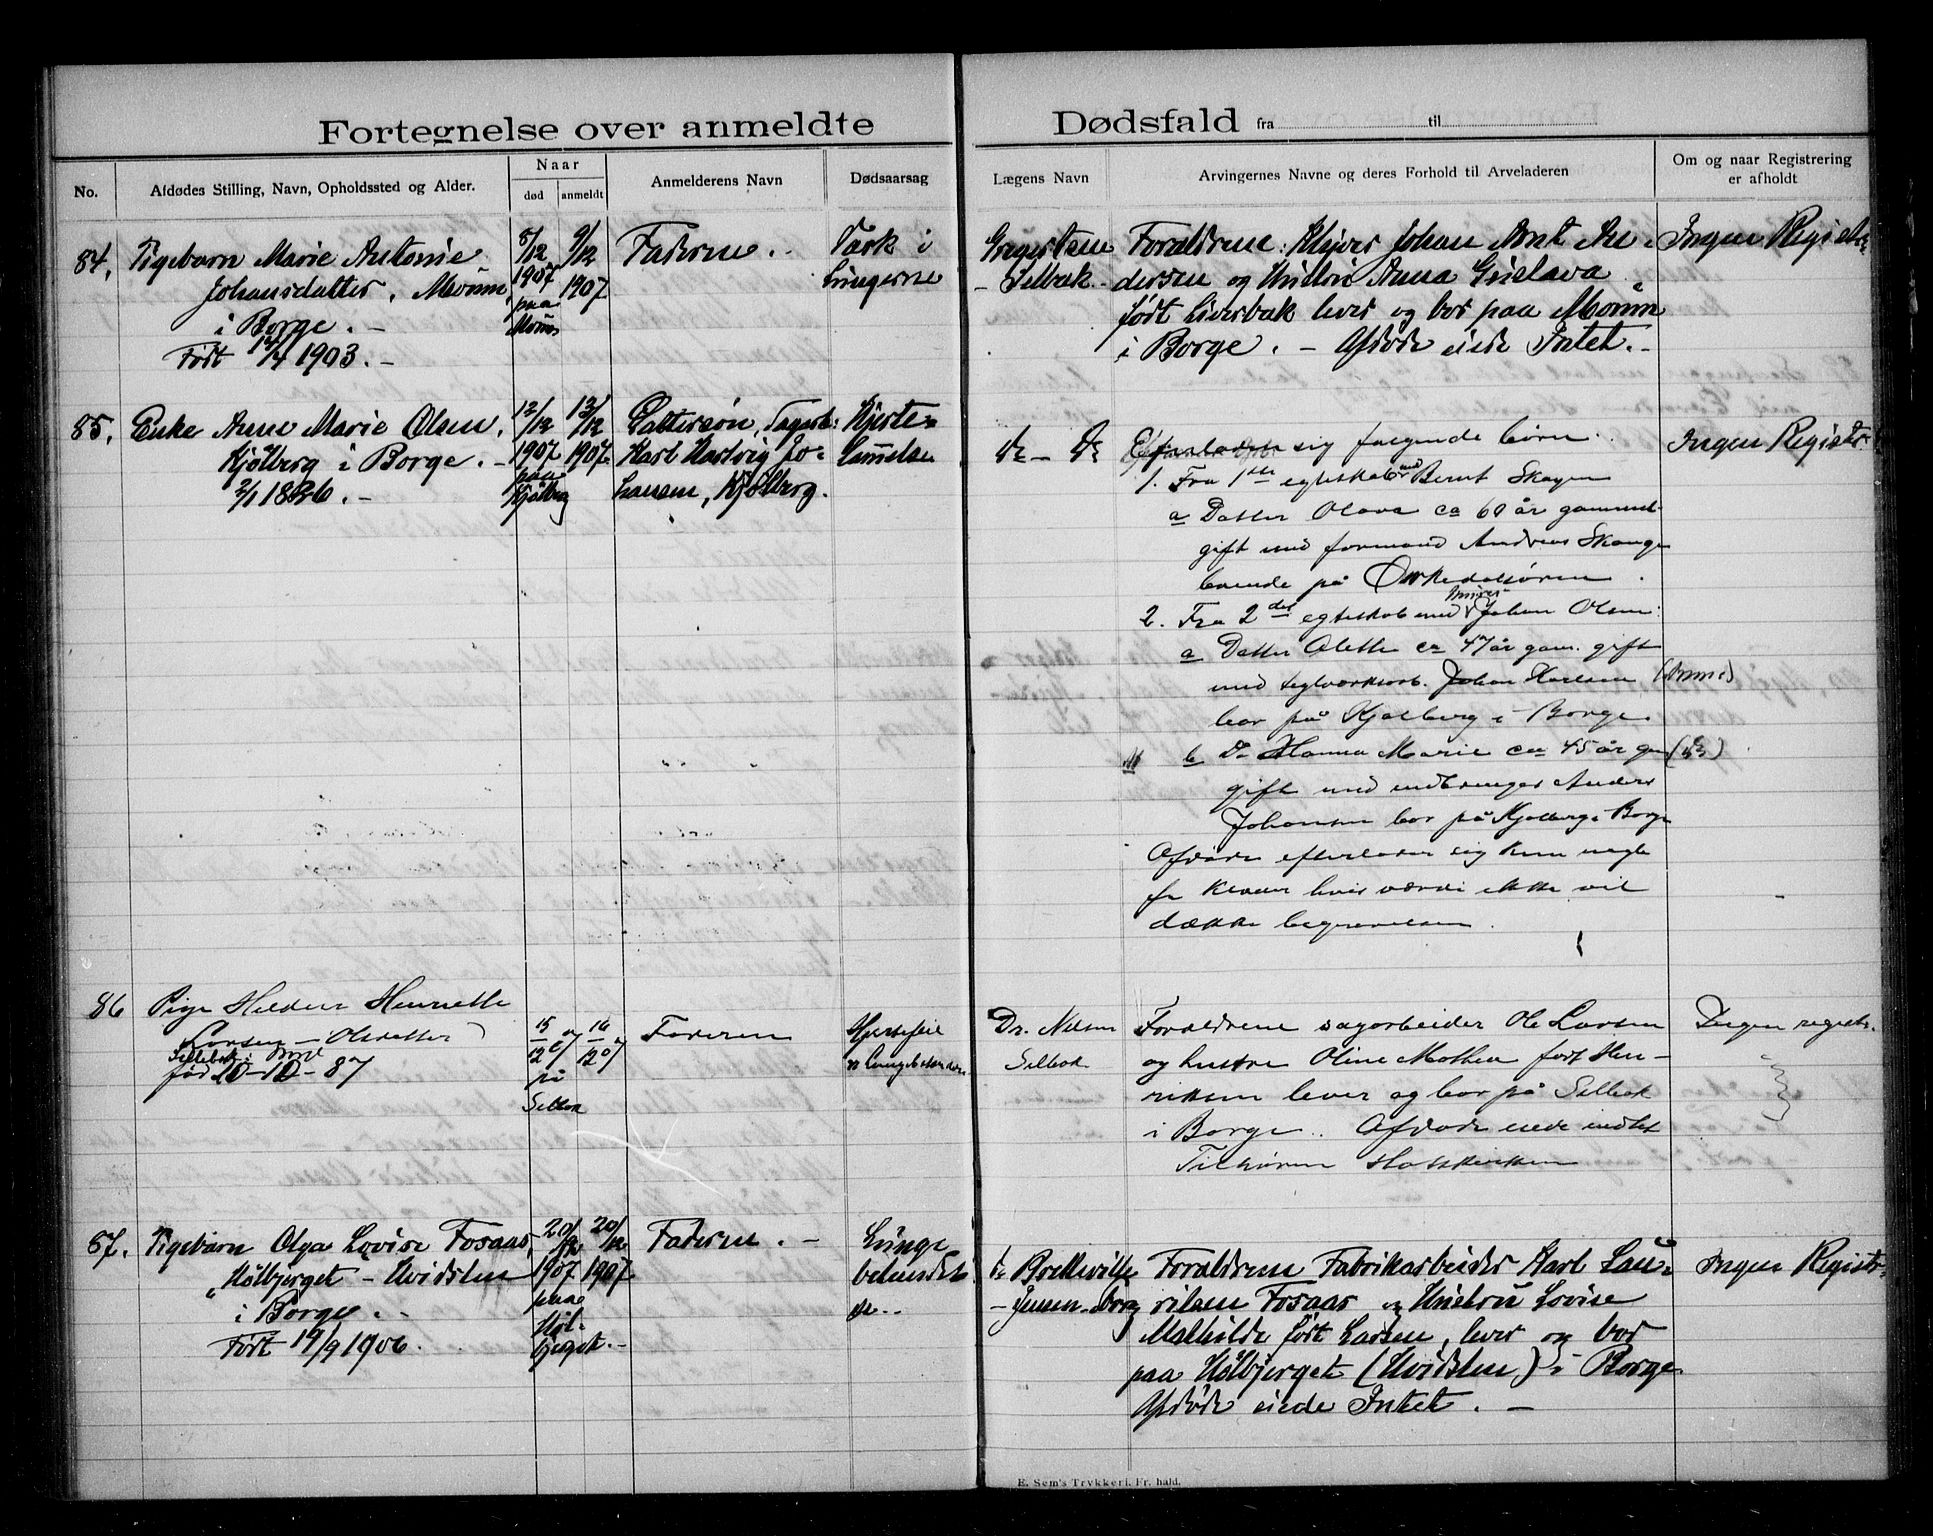 Fortegnelse over anmeldte Dødsfald fra til
No.
Afdødes Stilling, Navn, Opholdssted og Alder.
Naar
død anmeldt
Anmelderens Navn
Dødsaarsag
Lægens Navn
Arvingernes Navne og deres Forhold til Arveladeren
Om og naar Registrering
er afholdt
84.
Pigebarn Marie Antonie
Johansdatter, Moum
i Borge. -
Født 14/4 1903. -
8/12
1907
paa
Moum
9/12
1907
Faderen. -
Værk i
Lungerne
Engesteen
- Selbak -
Forældrene: Skyver Johan Arnt An-
dersen og Hustru Anna Gustava
født Liverbak lever og bor paa Moum
i Borge. - Afdøde eiede Intet. -
Ingen Registr.
85.
Enke Anne Marie Olsen,
Kjølberg i Borge. -
2/1 1826. -
12/12
1907
paa
Kjølberg
13/12
1907
Dattersøn, Tagert:
Karl Hartvig Jo-
hansen, Kjølberg.
Hjerte-
Lammelse
do - do
Efterlader sig følgende børn:
1. Fra 1ste egteskab med Bernt Skogen
a Datter Olava ca 60 år gammel
gift med formand Andreas Skauge
boende på Orkedalsøren.
2. Fra 2det egteskab med Johan Olsen:
a Datter Olette ca 47 år gam. gift
med teglværksarb. Johan Karlsen
bor på Kjølberg i Borge.
b Do Hanna Marie ca 45 år gam
gift med indbringer Anders
Johansen bor på Kjølberg i Borge
Afdøde efterlader sig kun nogle
få klæder hvis værdi ikke vil
dække begravelsen.
Ingen Registr.
86
Pige Helden Henriette
Larsen - Olsdatter
Selbak i Borge
fød 10-10-87
15/12 07
på
Selbak
16/12 07
Faderen
Hjertefeil
og Lungebetændelse
Dr. Nilsen
Selbak
Forældrene sagarbeider Ole Larsen
og hustru Oline Mathea født Hen-
riksen lever og bor på Selbak
i Borge. Afdøde eiede intet
Tilhørte Statskirken
Ingen registr.
87.
Pigebarn Olga Lovise Fosaas,
Hølbjerget - Hvidsten
i Borge. -
Født 19/9 1906.
20/12
1907
paa
Høl-
bjerget. -
20/12
1907
Faderen. -
Lunge
betændel-
se. -
Forældrene Fabrikarbeider Karl Lau-
ritsen Fosaas og Hustru Lovise
Mathilde født Larsen, lever og bor
paa Hølbjerget (Hvidsten) i Borge
Afdøde eiede Intet. -
Ingen Registr.
E. Sem's Trykkeri, Fr. hald.